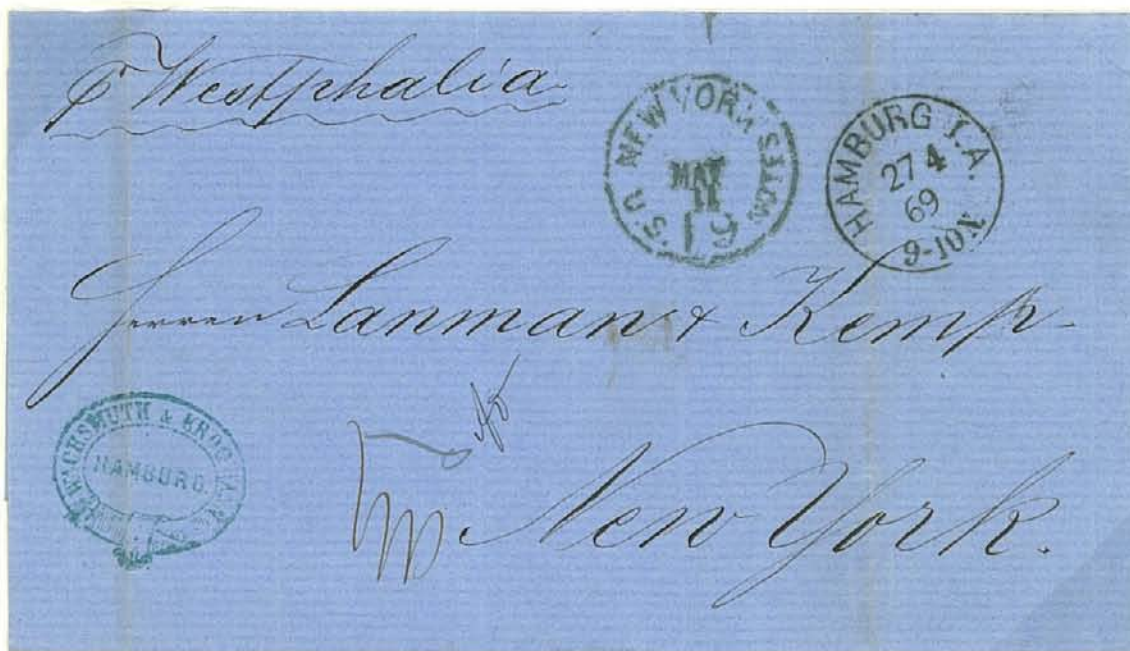 pr Westphalia
NEW YORK
U.S. NOTES
MAY
11
19
HAMBURG I.A.
27 4
69
9-10N
Herren Lanman & Kemp
WACHSMUTH & KROGMANN
HAMBURG.
New York.